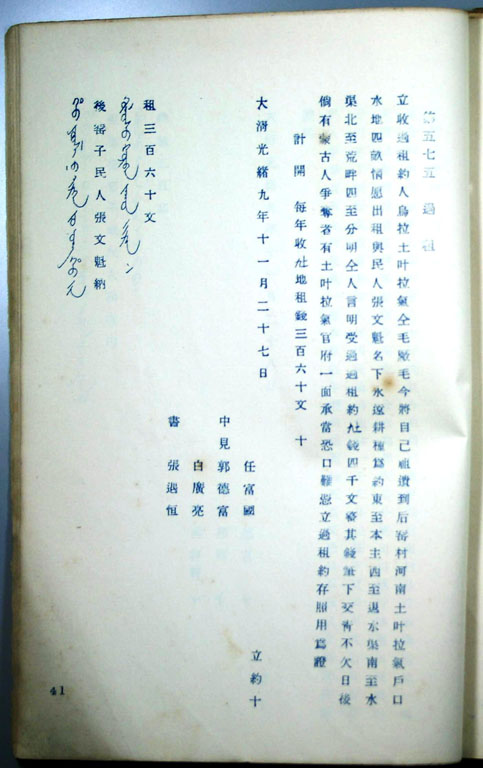 第五七五 過租
立收過租約人烏拉土叶拉氣仝毛 毛今將自己祖遺到后窰村河南土叶拉氣戶口
水地四畝情愿出租與民人張文魁名下永遠耕種爲約東至本主西至退水渠南至水
渠北至荒畔四至分明仝人言明受過過租約 錢四千文 其錢筆下交 不欠日後
倘有蒙古人爭奪者有土叶拉氣官府一面承當恐口難憑立過租約存照用爲證
計開 每年收 地租錢三百六十文 十
大淸光緒九年十一月二十七日 立約十
任富國
中見郭德富
白廣亮
書 張遇恒
租三百六十文
後窰子民人張文魁納
41